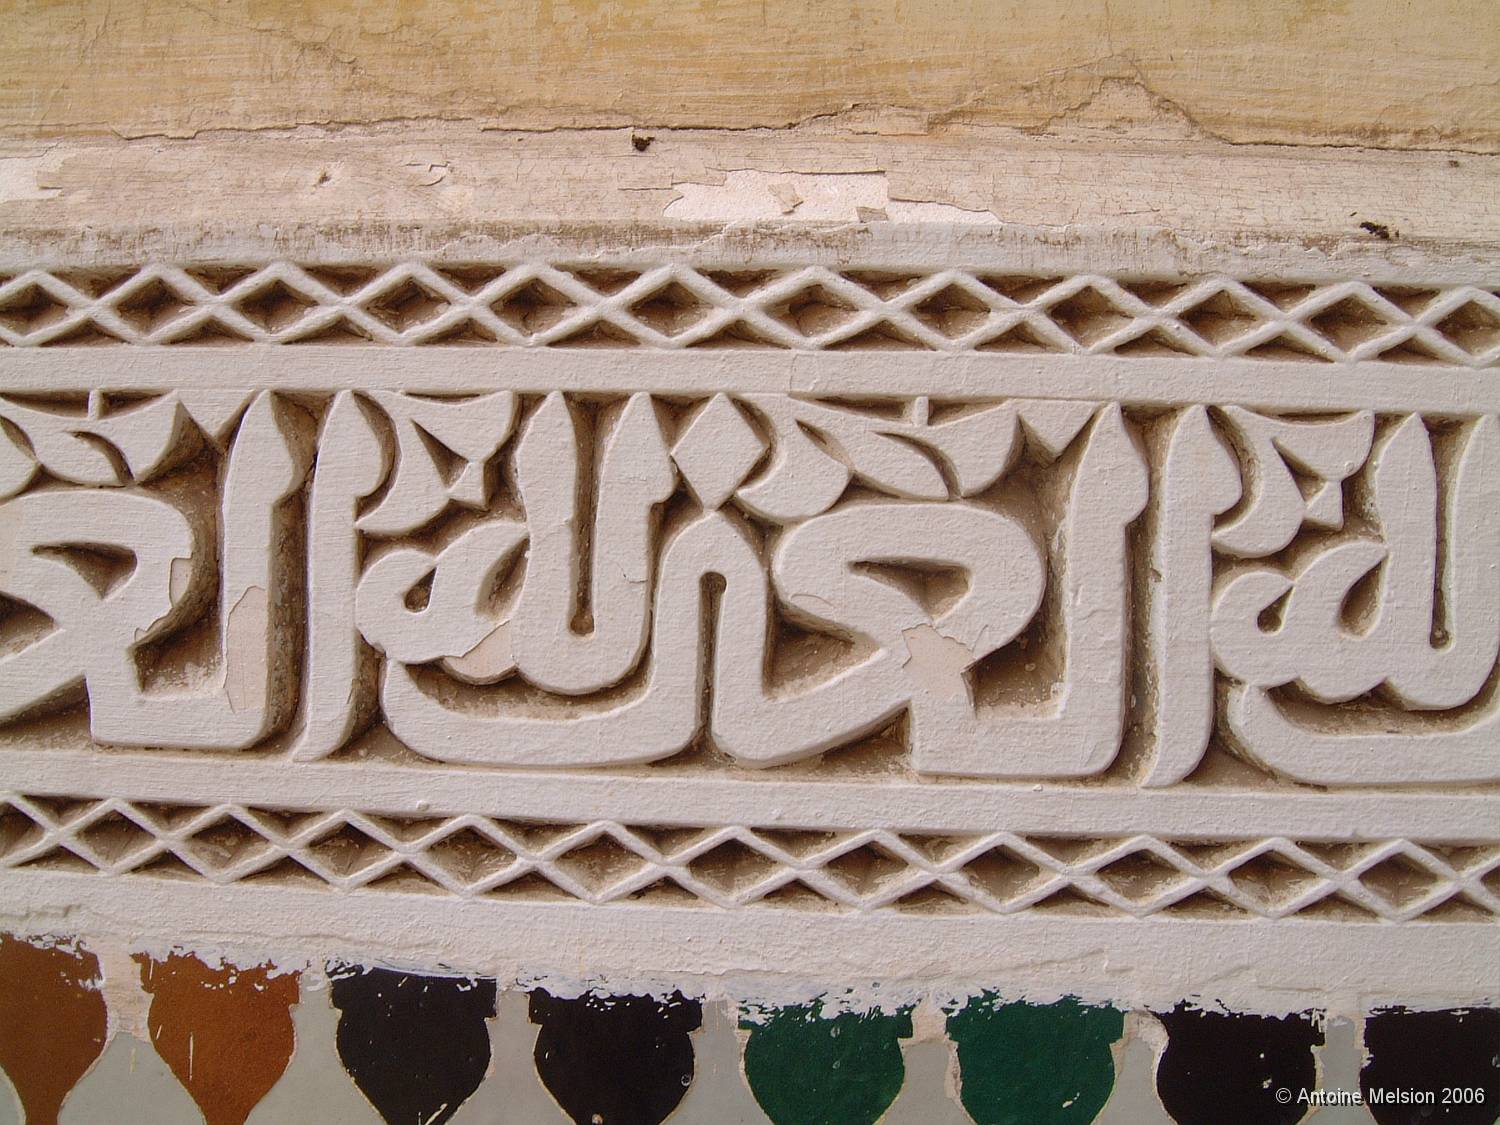 لله العز لله
© Antoine Melsion 2006